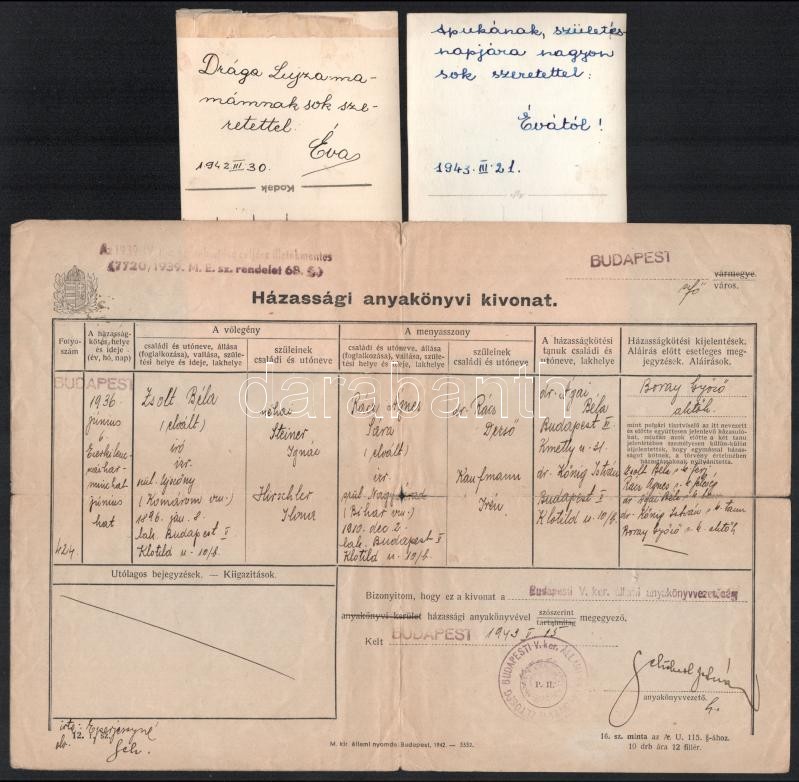 Drága Lujzama-
mámnak sok sze-
retettel:
Éva
1942 III 30.
Kodak
apukának, születés-
napjára nagyon
sok szeretettel:
Évától!
1943. III. 21.
(7720/1939. M. E. sz. rendelet 68. §)
BUDAPEST
vármegye.
város.
Házassági anyakönyvi kivonat.
Folyó-
szám
A házasság-
kötés helye
és ideje
(év, hó, nap)
A vőlegény
családi és utóneve, állása
(foglalkozása), vallása, szüle-
tési helye és ideje, lakhelye
szüleinek
családi és utóneve
A menyasszony
családi és utóneve, állása
(foglalkozása), vallása, szüle-
tési helye és ideje, lakhelye
szüleinek
családi és utóneve
A házasságkötési
tanuk családi és
utóneve, lakhelye
Házasságkötési kijelentések.
Aláírás előtt esetleges meg-
jegyzések. Aláírások.
BUDAPEST
1936
június
6.
június
hat
424
Zsolt Béla
(elvált)
író
izr.
(Komárom vm.)
1896. jan. 8.
lak. Budapest V
Klotild u. 10/b.
néhai
Steiner
Ignác
Hirschler
Ilona
Rácz Ágnes
Sára
(elvált)
izr.
(Bihar vm.)
1910. dec 2.
lak. Budapest V
Klotild u. 10/b.
dr. Rácz
Dezső
Kaufmann
Irén
dr. Ágai
Béla
Budapest V.
Kmetty u. 31.
dr. König István
Budapest V
Klotild u. 10/b
Boray Győző
aktőh.
mint polgári tisztviselő az itt nevezett
és előtte együttesen jelenlevő házasulók-
kat, miután azok előtte a két tanu
jelenlétében személyesen külön-külön
kijelentették, hogy egymással házassá-
got kötnek, a törvény értelmében
házastársaknak nyilvánította.
Zsolt Béla s. k. férj
Rácz Ágnes s. k. feleség
dr. Ágai Béla s. k. tanu
dr. König István s. k. tanu
Boray Győző s. k. aktőh
Utólagos bejegyzések. — Kiigazítások.
Bizonyítom, hogy ez a kivonat a Budapesti V. ker. állami anyakönyvvezetőség
anyakönyvi kerület házassági anyakönyvével szószerint
tartalmilag megegyező.
Kelt BUDAPEST 1943 V 13
BUDAPESTI V. ker. ÁLLAMI
P. H.
anyakönyvvezető.
h.
írta:
12. l. sz.
M. kir. állami nyomda. Budapest, 1942. — 5552.
16. sz. minta az Æ. U. 115. §-ához.
10 drb ára 12 fillér.
darabanth